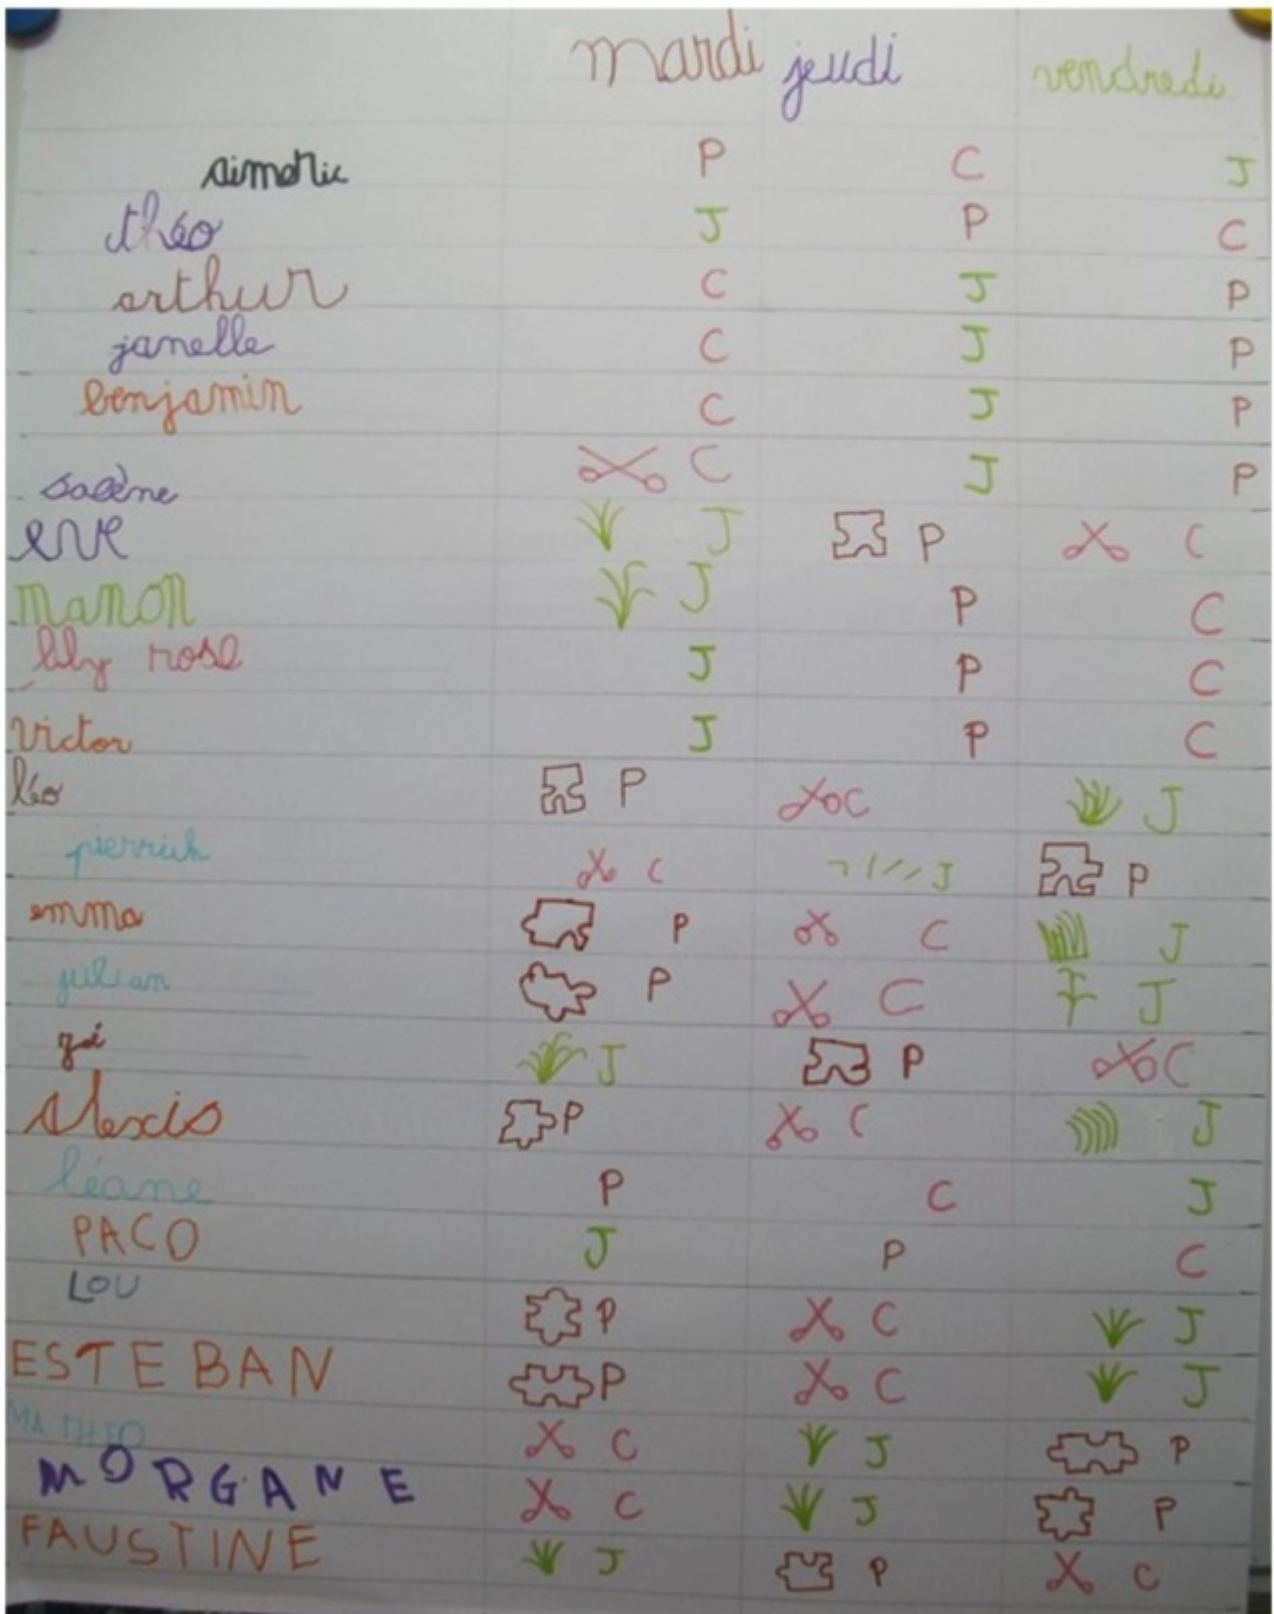 mardi jeudi vendredi
aimeric P C J
théo J P C
arthur C J P
janelle C J P
benjamin C J P
solène C J P
eve J P C
manon J P C
lily rose J P C
victor J P C
léo P C J
pierrick C J P
emma P C J
julian P C J
zoé J P C
alexis P C J
léane P C J
PACO J P C
LOU P C J
ESTEBAN P C J
MATHEO C J P
MORGANE C J P
FAUSTINE J P C